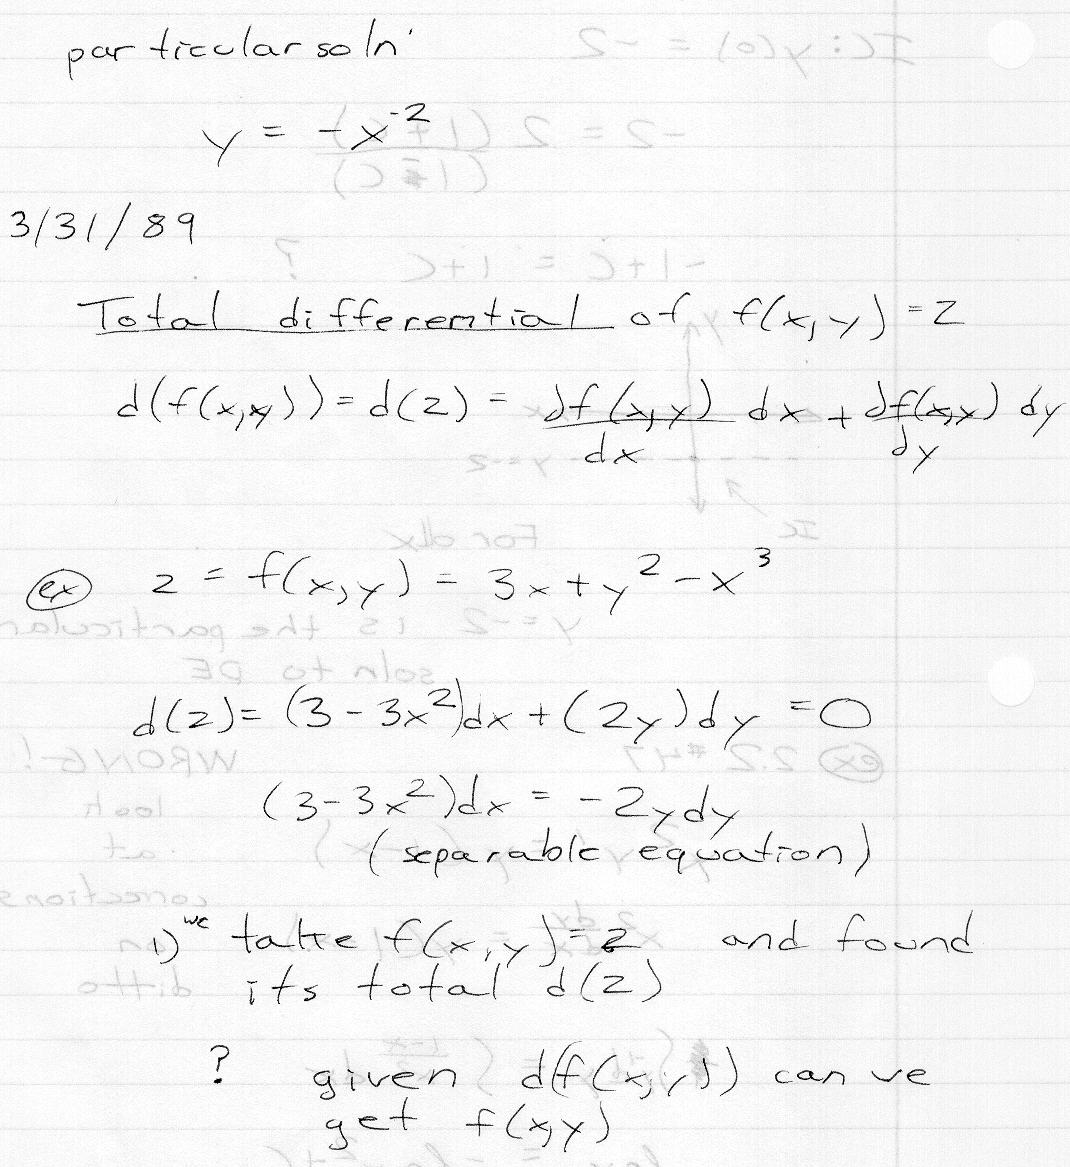 particular soln
y = -x^-2
3/31/89
Total differential of f(x,y) = z
d(f(x,y)) = d(z) = ∂f(x,y)/dx dx + ∂f(x,y)/dy dy
ex z = f(x,y) = 3x + y^2 - x^3
d(z) = (3 - 3x^2)dx + (2y)dy = 0
(3 - 3x^2)dx = -2ydy
(separable equation)
1) we take f(x,y) = z and found
its total d(z)
? given d(f(x,y)) can we
get f(x,y)